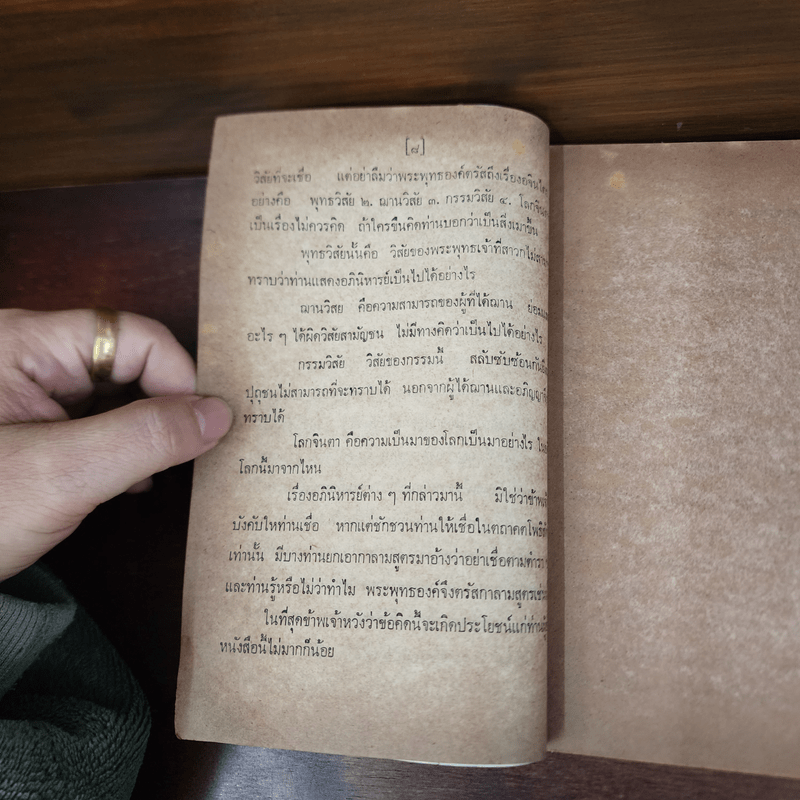 [๘]
วิสัยที่จะเชื่อ แต่อย่าลืมว่าพระพุทธองค์ตรัสถึงเรื่องอจินไตย
อย่างคือ พุทธวิสัย ๒. ฌานวิสัย ๓. กรรมวิสัย ๔. โลกจินตา
เป็นเรื่องไม่ควรคิด ถ้าใครขืนคิดท่านบอกว่าเป็นสิ่งเมาขึ้น
พุทธวิสัยนั้นคือ วิสัยของพระพุทธเจ้าที่สาวกไม่
ทราบว่าท่านแสดงอภินิหารย์เป็นไปได้อย่างไร
ฌานวิสย คือความสามารถของผู้ที่ได้ฌาน
อะไร ๆ ได้ผิดวิสัยสามัญชน ไม่มีทางคิดว่าเป็นไปได้อย่างไร
กรรมวิสัย วิสัยของกรรมนี้ สลับซับซ้อนกัน
ปุถุชนไม่สามารถที่จะทราบได้ นอกจากผู้ได้ฌานและอภิญญา
ทราบได้
โลกจินตา คือความเป็นมาของโลกเป็นมาอย่างไร
โลกนี้มาจากไหน
เรื่องอภินิหารย์ต่าง ๆ ที่กล่าวมานี้ มิใช่ว่าข้าพเจ้า
บังคับให้ท่านเชื่อ หากแต่ชักชวนท่านให้เชื่อในตถาคตโพธิ
เท่านั้น มีบางท่านยกเอากาลามสูตรมาอ้างว่าอย่าเชื่อตามตำรา
และท่านรู้หรือไม่ว่าทำไม พระพุทธองค์จึงตรัสกาลามสูตร
ในที่สุดข้าพเจ้าหวังว่าข้อคิดนี้จะเกิดประโยชน์แก่ท่าน
หนังสือนี้ไม่มากก็น้อย